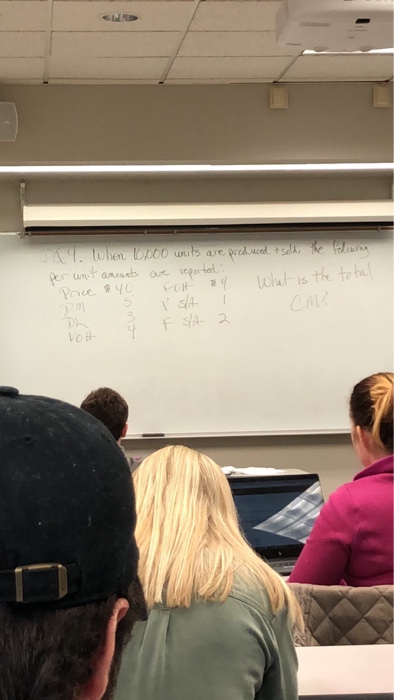 Q4. When 10,000 units are produced + sold, the following
per unit amounts are reported:
Price $40 FOH $4
DM 5 V S/A 1
DL 3 F S/A 2
VOH 4
What is the total
CM?